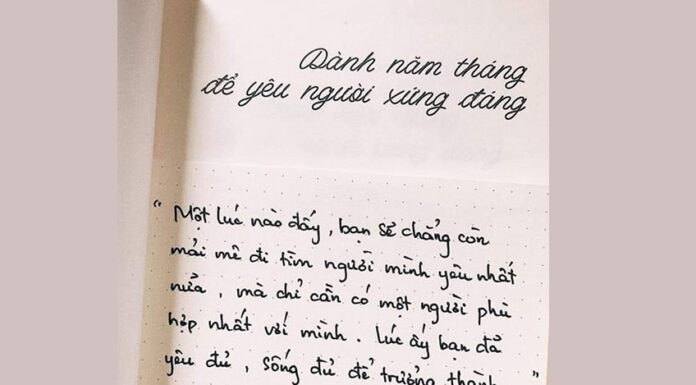 Dành năm tháng
để yêu người xứng đáng
“ Một lúc nào đấy, bạn sẽ chẳng còn
mải mê đi tìm người mình yêu nhất
nửa, mà chỉ cần có một người phù
hợp nhất với mình. Lúc ấy bạn đã
yêu đủ, sống đủ để trưởng thành ”